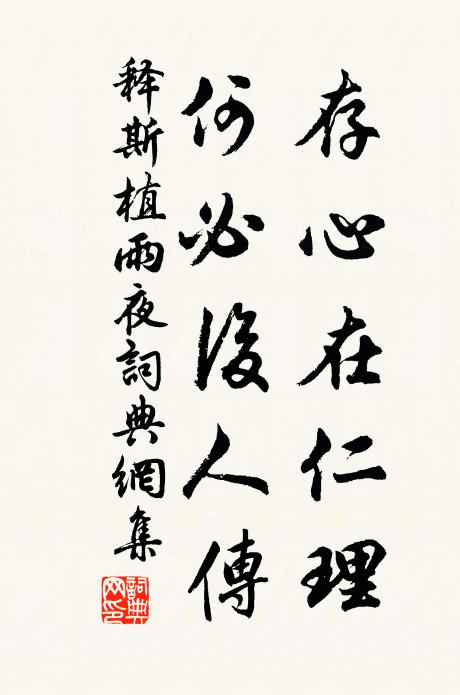 存心在仁理
何必後人傳
释斯植雨夜詞典網集
詞典
网印